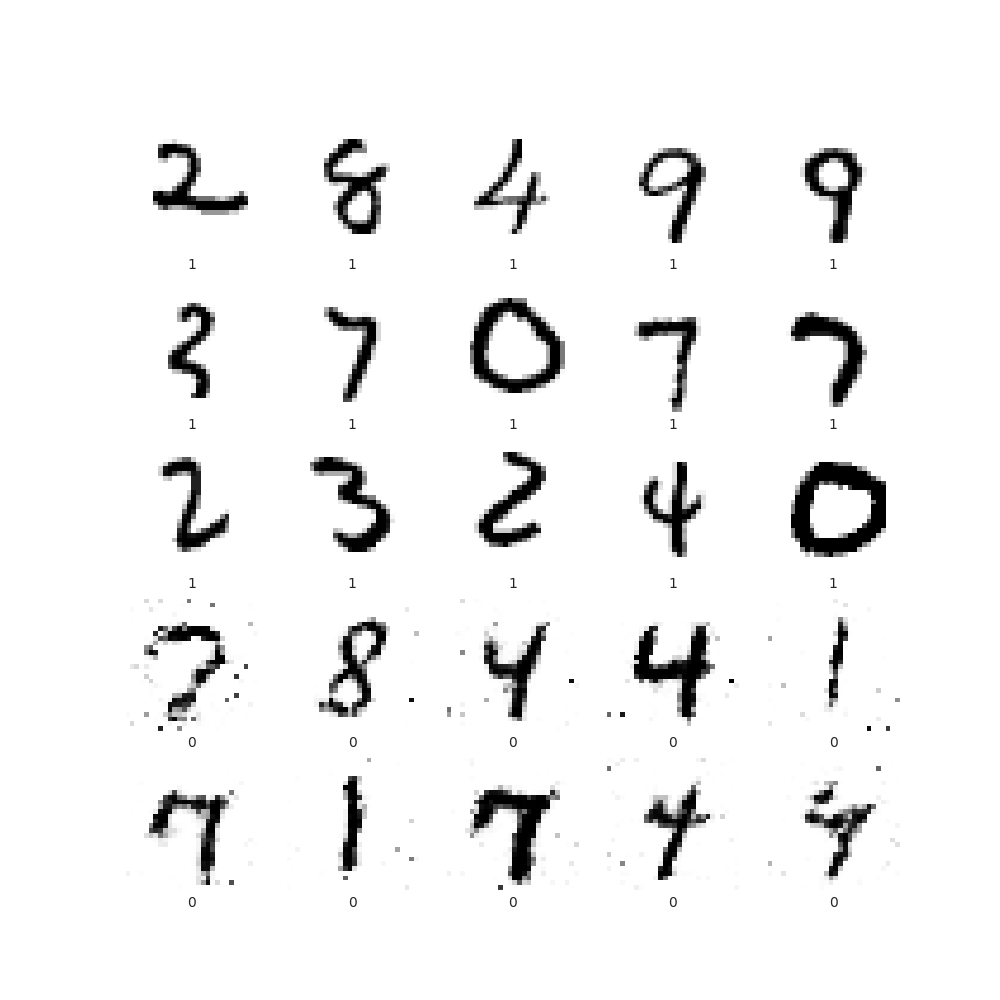 2 8 4 9 9
1 1 1 1 1
3 7 0 7 7
1 1 1 1 1
2 3 2 4 0
1 1 1 1 1
7 8 4 4 1
0 0 0 0 0
7 1 7 4 4
0 0 0 0 0